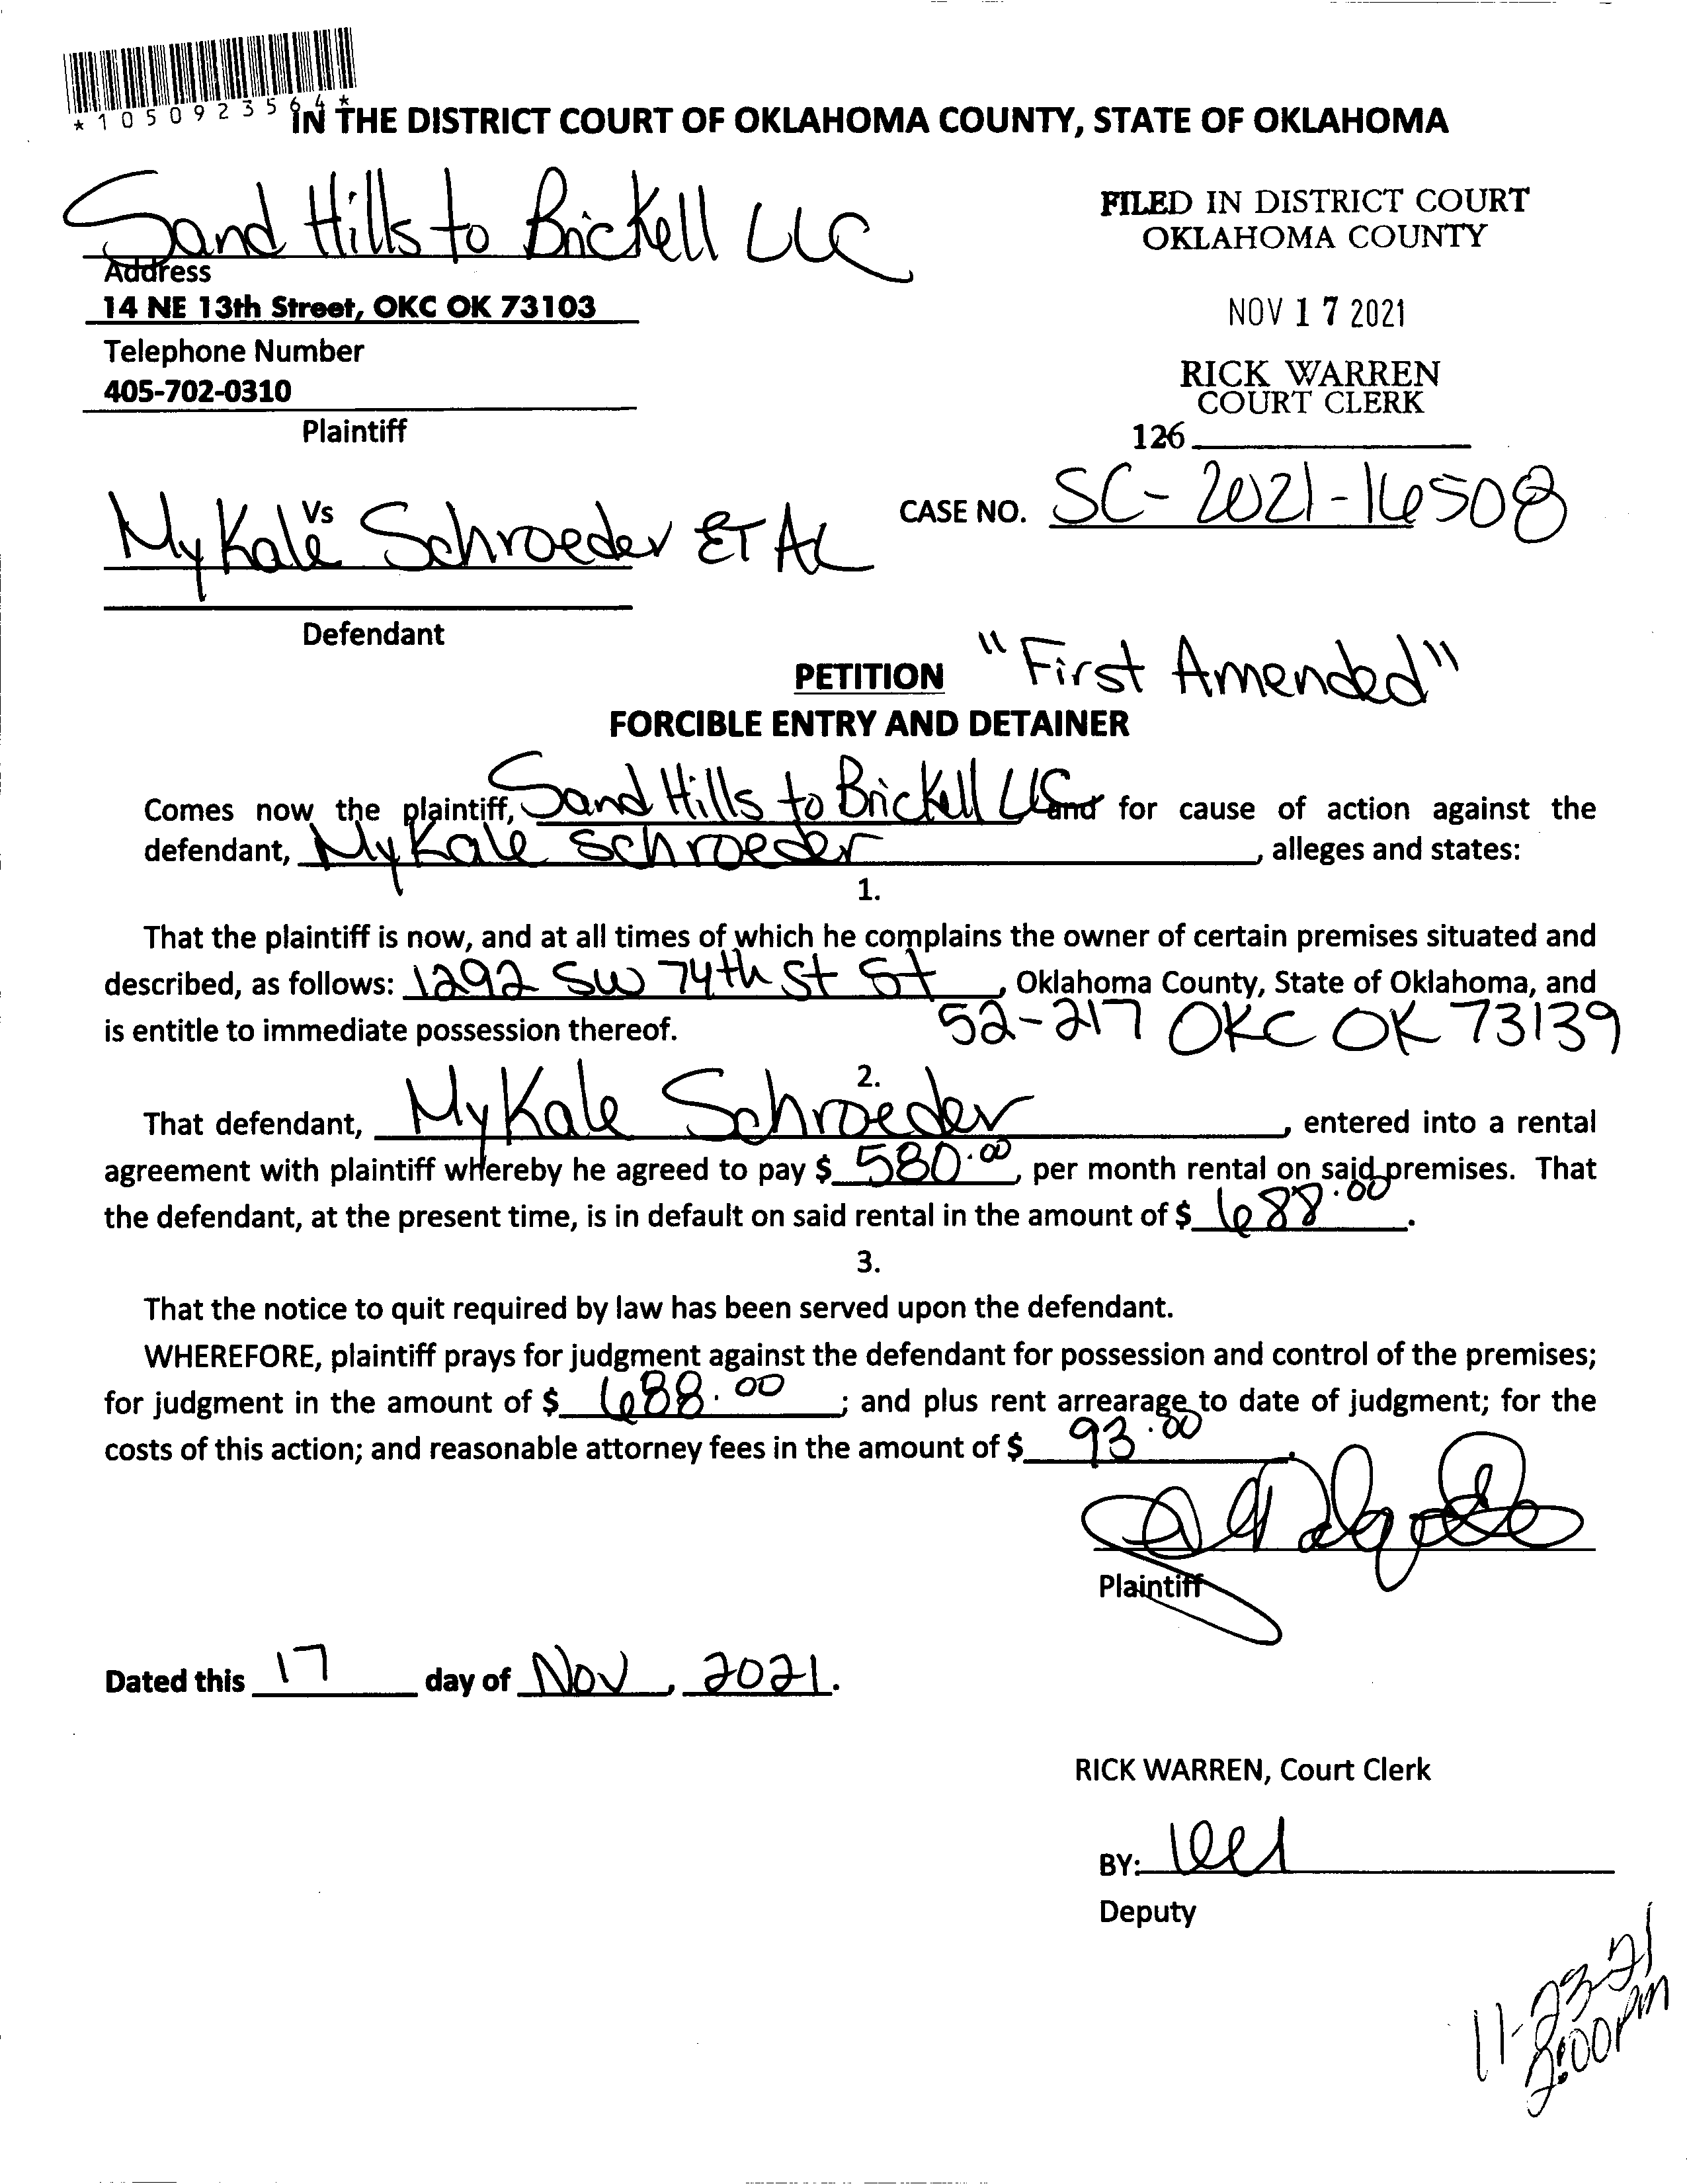 *1050923564*
IN THE DISTRICT COURT OF OKLAHOMA COUNTY, STATE OF OKLAHOMA
Sand Hills to Brickell LLC
Address
14 NE 13th Street, OKC OK 73103
Telephone Number
405-702-0310
Plaintiff
FILED IN DISTRICT COURT
OKLAHOMA COUNTY
NOV 17 2021
RICK WARREN
COURT CLERK
126
Vs
MyKale Schroeder ET AL
CASE NO. SC-2021-16508
Defendant
PETITION "First Amended"
FORCIBLE ENTRY AND DETAINER
Comes now the plaintiff, Sand Hills to Brickell LLC and for cause of action against the
defendant, MyKale Schroeder, alleges and states:
1.
That the plaintiff is now, and at all times of which he complains the owner of certain premises situated and
described, as follows: 1292 SW 74th St St, Oklahoma County, State of Oklahoma, and
is entitle to immediate possession thereof. 52-217 OKC OK 73139
2.
That defendant, MyKale Schroeder, entered into a rental
agreement with plaintiff whereby he agreed to pay $ 580.00, per month rental on said premises. That
the defendant, at the present time, is in default on said rental in the amount of $ 688.00.
3.
That the notice to quit required by law has been served upon the defendant.
WHEREFORE, plaintiff prays for judgment against the defendant for possession and control of the premises;
for judgment in the amount of $ 688.00; and plus rent arrearage to date of judgment; for the
costs of this action; and reasonable attorney fees in the amount of $ 93.00.
Plaintiff
Dated this 17 day of Nov, 2021.
RICK WARREN, Court Clerk
BY:
Deputy
11-23-21
2:00PM